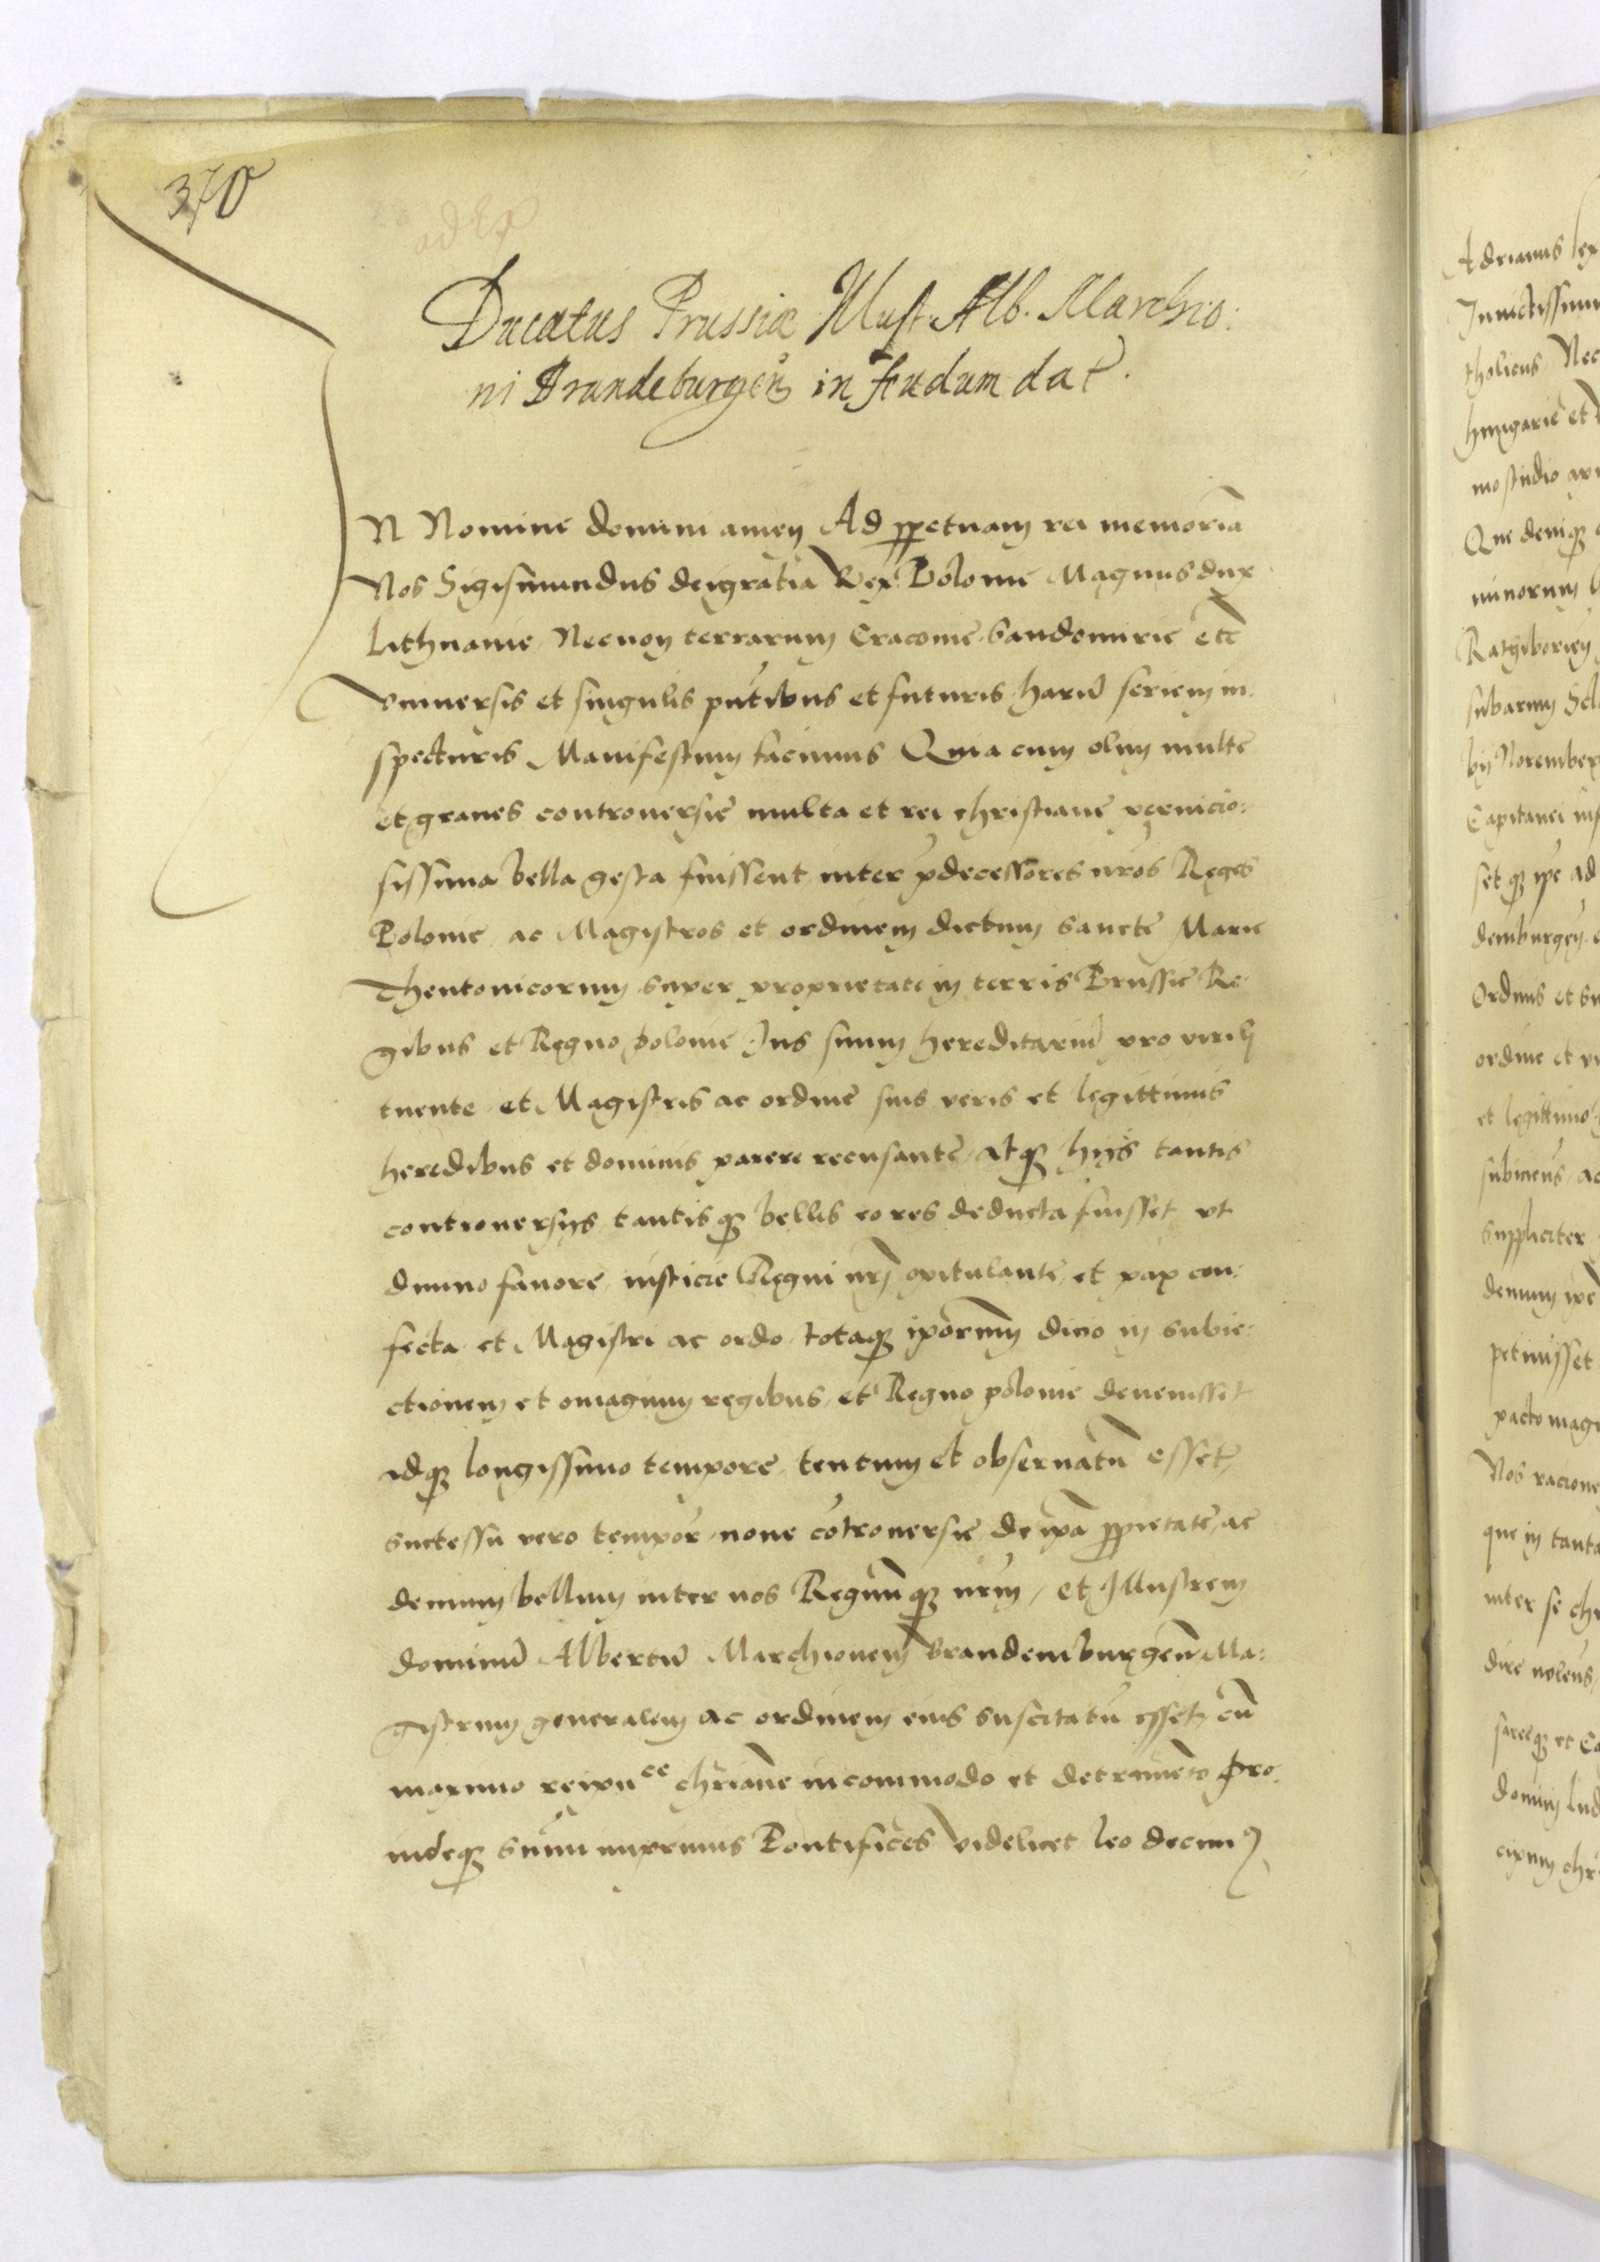 370
Ducatus Prussiæ Illust. Alb. Marchio:
ni Brandeburgen̄ in feudum dat.
IN Nomine domini amen Ad ꝑpetuam rei memoriā
Nos Sigismundus deigratia Rex Polonie Magnus dux
Lithuanie Necnon terrarum Cracouie Sandomirie etc̄
Vniuersis et singulis pn̄tibus et futuris harū seriem in:
specturis Manifestum facimus Quia cum olim multe
et graues controuersie multa et rei christiane pernicio:
sissima bella gesta fuissent inter p̄decessores nr̄os Reges
Polonie ac Magistros et ordinem dictum Sancte Marie
Theutonicorum super proprietate in terris Prussie Re:
gibus et Regno polonie Jus suum hereditariū pro virili
tuente et Magistris ac ordine suis veris et legittimis
heredibus et dominis parere recusante, atqꝫ hijs tantis
controuersijs tantisqꝫ bellis eo res deducta fuisset vt
diuino fauore iusticie Regni nr̄j opitulante et pax con:
fecta et Magistri ac ordo totaqꝫ ip̄orum dicio in subie:
ctionem et omagium regibus et Regno polonie deuenisset
idqꝫ longissimo tempore tentum et obseruatū esset,
successu vero tempor̄ noue cōtrouersie de ip̄a ꝓprietate, ac
demum bellum inter nos Regnumqꝫ nr̄m, et Illustrem
dominū Albertū Marchionem Brandemburgen̄ Ma:
gistrum generalem ac ordinem eius suscitatū esset, cū
maximo reipu^ce chr̄iane incommodo et detrimēto Pro:
indeqꝫ summi inprimis Pontifices videlicet Leo decimꝰ
Adrianus
Inuictissimu
tholicus Nec
hungarie et
mo studio
Que deniqꝫ
minorum
Ratiborien
bij Norember
Capitanei
set qꝫ ip̄e ad
demburgen̄
Ordinis et su
ordine et
et legittimo
subiciens ac
suppliciter
demum ip̄e
petiuisset
pacto mag
Nos racione
que in tanta
inter se chr
dire nolens,
domini Lud
cipum chr